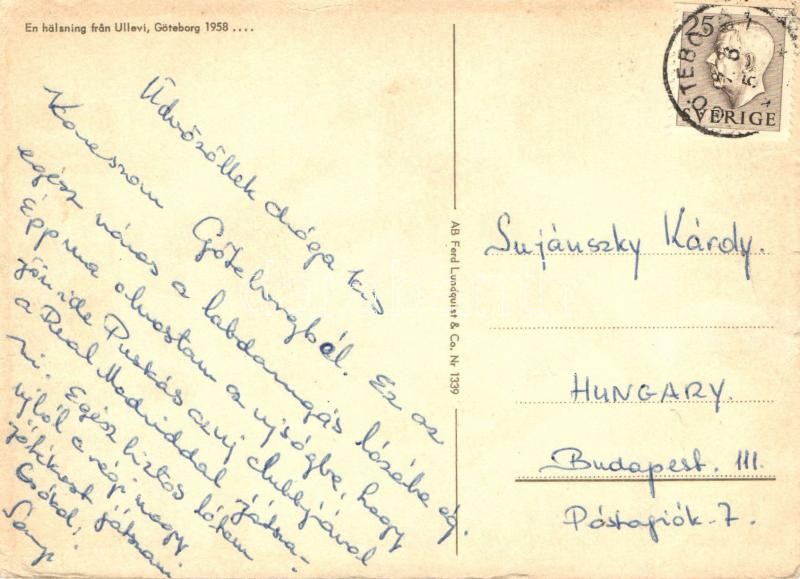 En hälsning från Ullevi, Göteborg 1958 ....
Üdvözöllek drága kis
Göteborgból. Ez az
egész város a labdarugás lázába ég.
Épp ma olvastam az ujságba, hogy
jön ide Puskás az uj clubbjával
a Real Madriddal játsza-
ni. Egész biztos látom
ujból a régi nagy
játékost játszani
AB Ferd Lundquist & Co. Nr 1339
25
SVERIGE
GÖTEBORG
Sujánszky Kárdy.
HUNGARY.
Budapest. III.
Postafiók-7.